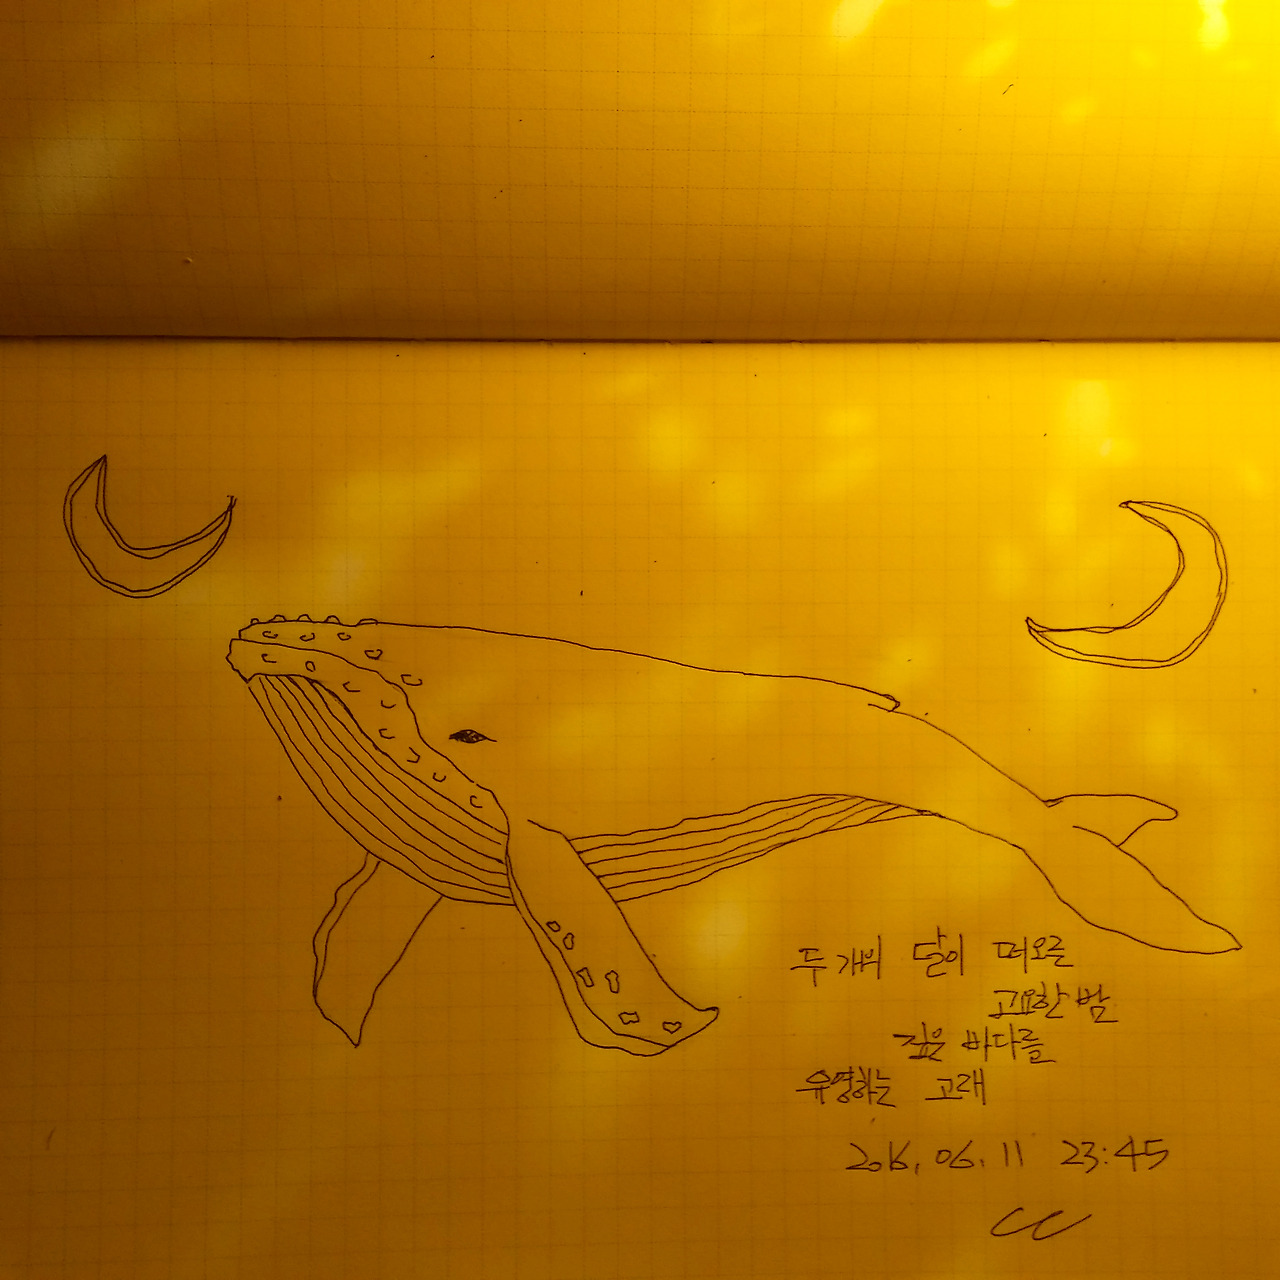 두개의 달이 떠오른
고요한 밤
깊은 바다를
유영하는 고래
2016.06.11 23:45
CC